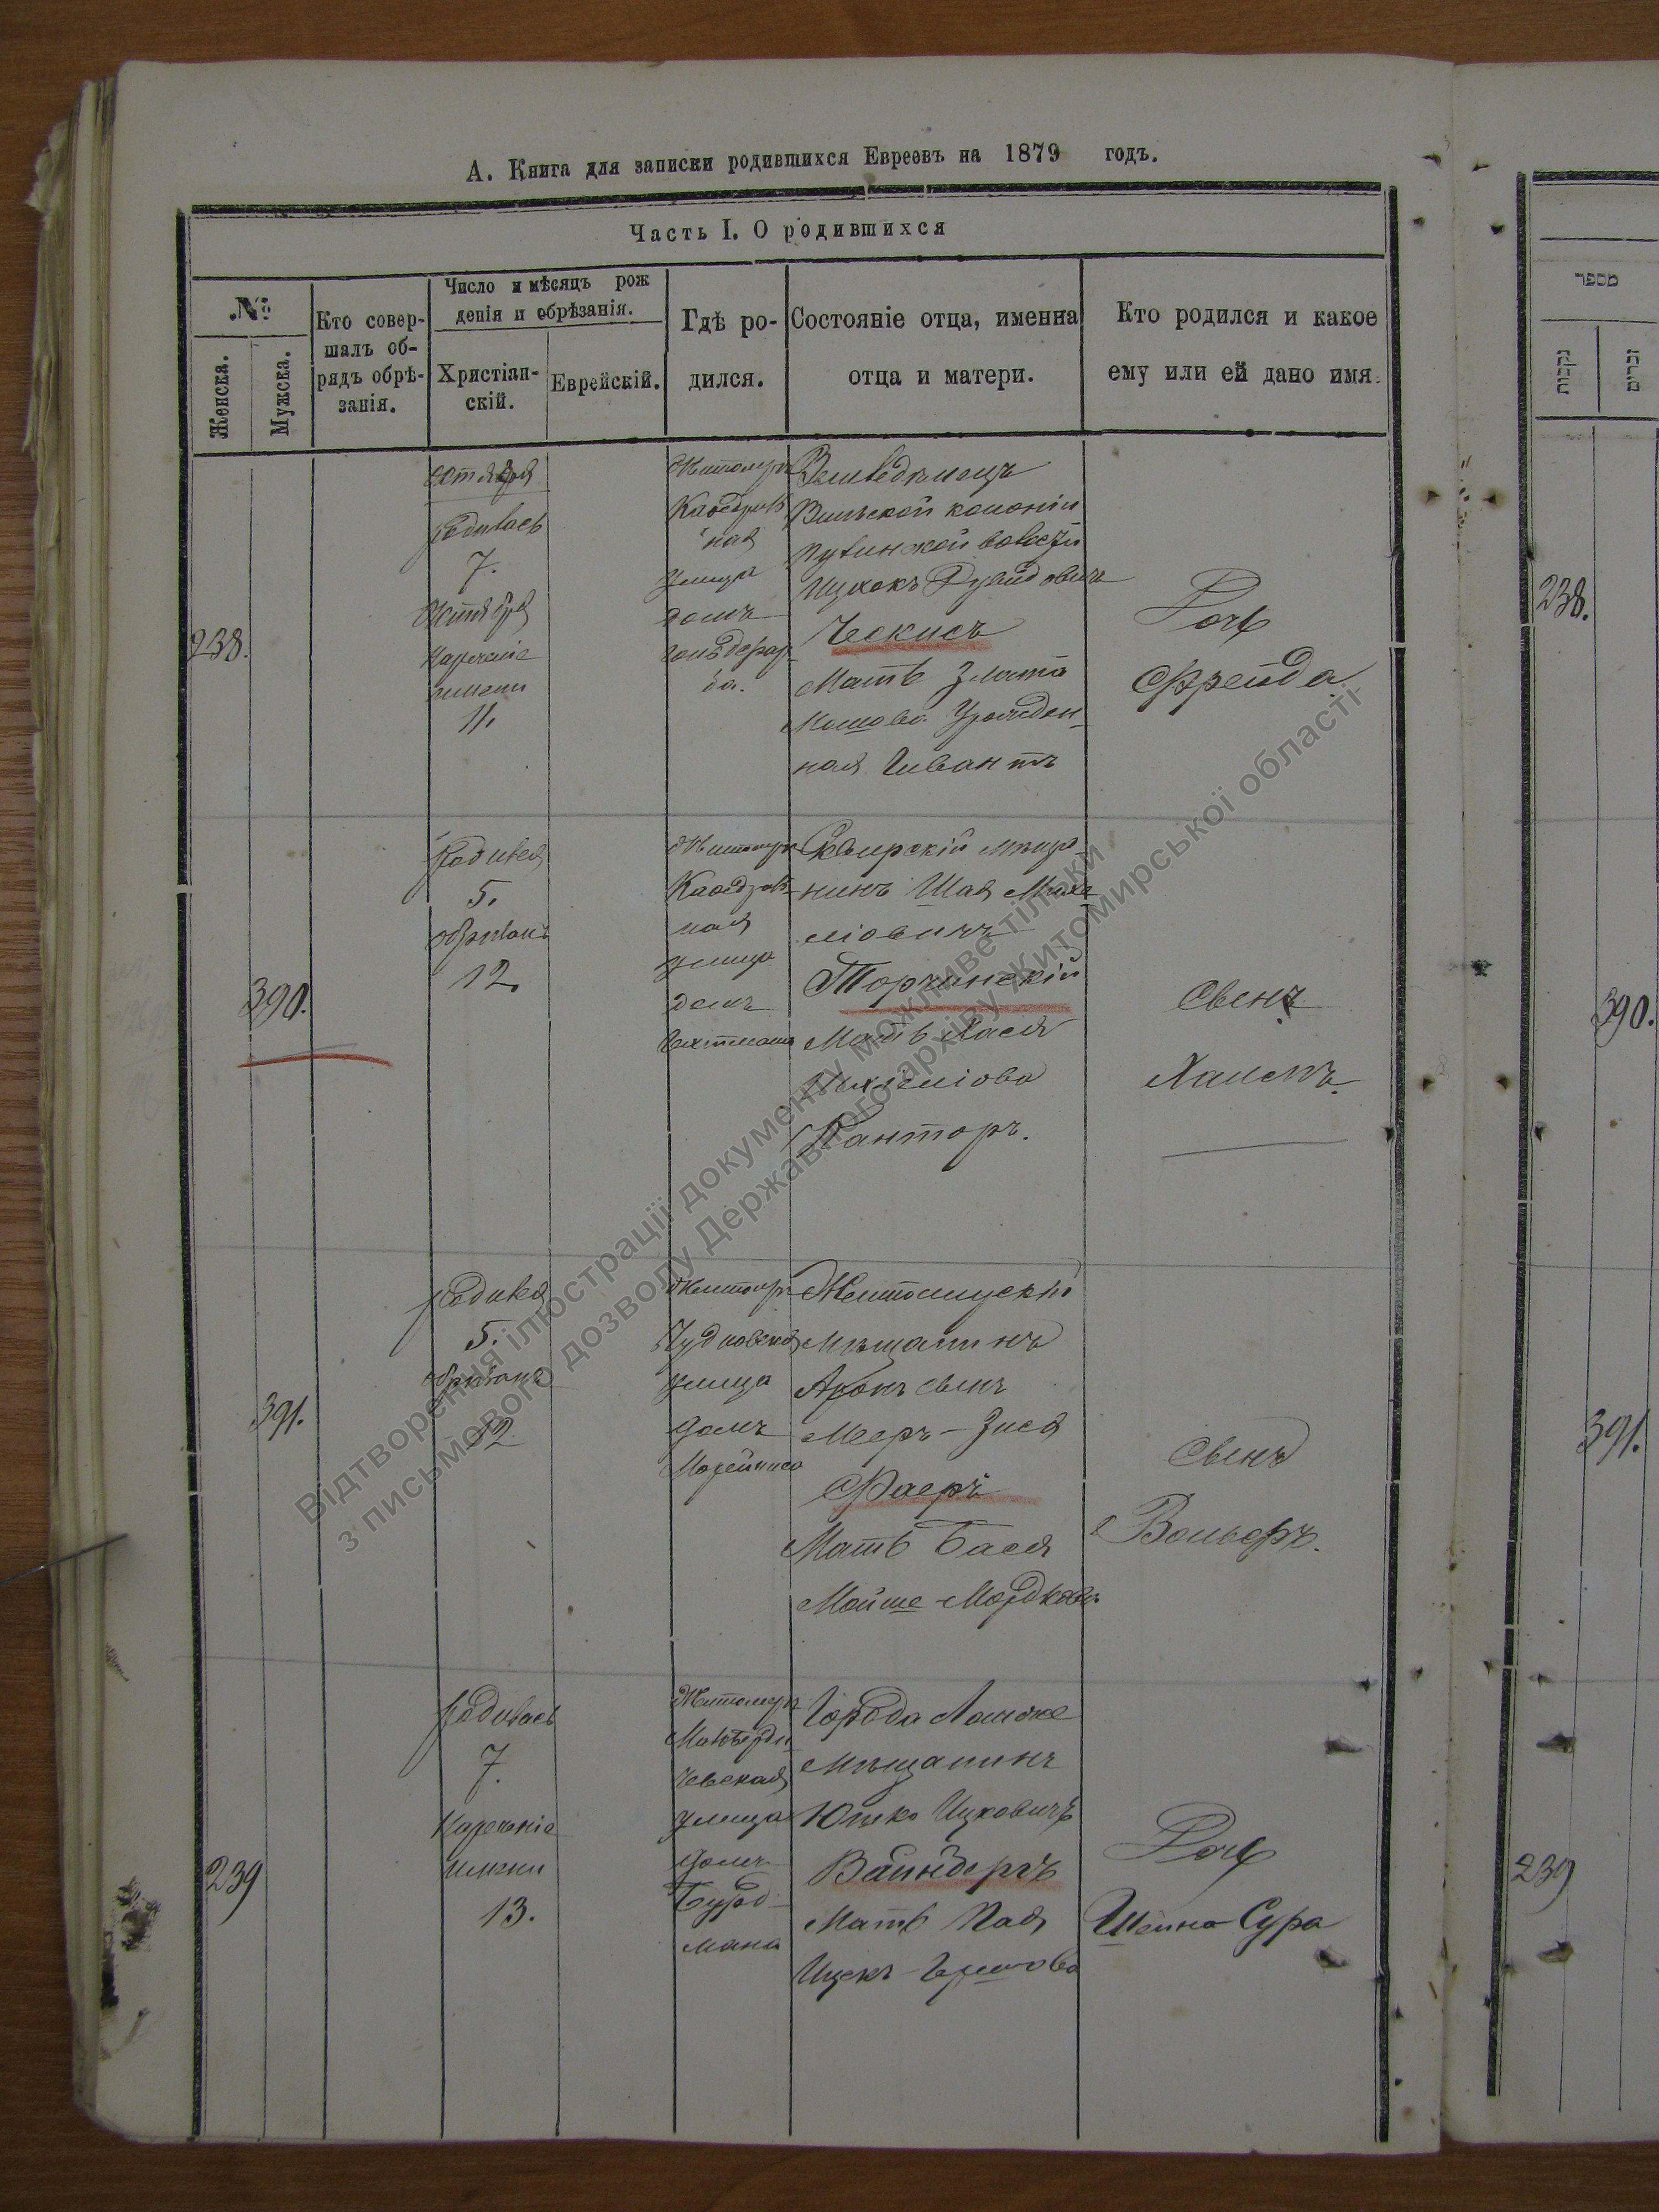 А. Книга для записки родившихся Евреевъ на 1879 годъ.
Часть I. О родившихся
№
Женска.
Мужска.
Кто совер-
шалъ об-
рядъ обрѣ-
занія.
Число и мѣсяцъ рож
денія и обрѣзанія.
Христіан-
скій.
Еврейскій.
Гдѣ ро-
дился.
Состояніе отца, имена
отца и матери.
Кто родился и какое
ему или ей дано имя.
238.
Октября
родилась
7.
Октября
нареченіе
имени
11.
Житомиръ
Кафедраль
ная
улица
домъ
Земледѣлецъ
Вильской колоніи
волости
Ицкокъ
Ческисъ
Мать Злата
Мошова Урожден-
ная
Дочь
Фрейда
390.
родился
5.
обрѣзанъ
12.
Житомиръ
Кафедраль-
ная
улица
домъ
Сквирскій мѣща-
нинъ Шая Миха
ліовичъ
Торчинскій
Мать Хася
Канторъ.
Сынъ
Хаимъ.
391.
родился
5.
обрѣзанъ
12
Житомиръ
Чудновская
улица
домъ
Житомирскій
мѣщанинъ
Аронъ сынъ
Мееръ-Зися
Фаеръ
Мать Бася
Мойше-Мордкова
Сынъ
Вольфъ.
239
родилась
7.
нареченіе
имени
13.
Житомиръ
Малобердь
чевская
улица
домъ
Бурд-
мана
Города
мѣщанинъ
Юшко Ицковичъ
Вайнбергъ
Мать
Ицекъ-Гершова
Дочь
Шейна-Сура
מספר
נקבות
זכרים
238.
390.
391.
239
Відтворення ілюстрації документу можливе тільки
з письмового дозволу Державного архіву Житомирської області